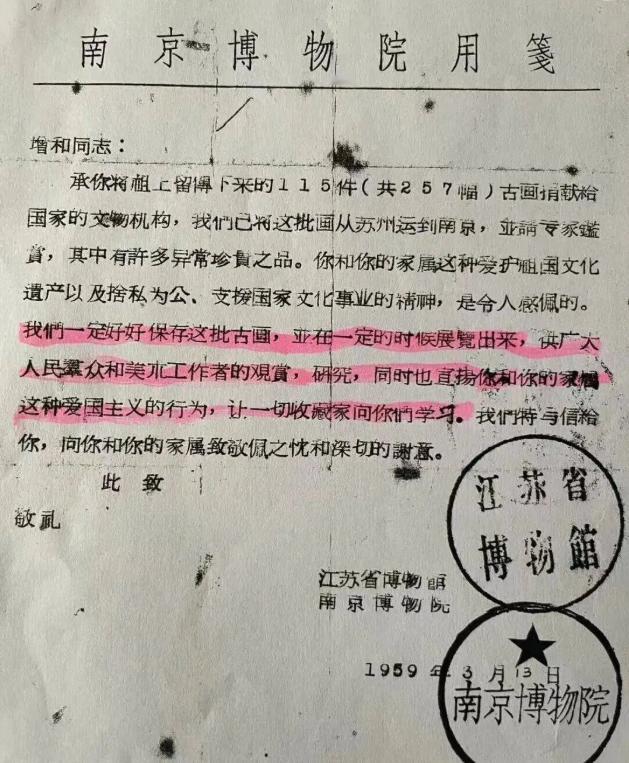 南京博物院用箋
增和同志：
承你将祖上留傳下来的115件（共257幅）古画捐献給
国家的文物机构，我們已将这批画从苏州运到南京，並請专家鑑
賞，其中有許多异常珍貴之品。你和你的家属这种爱护祖国文化
遺产以及捨私为公、支援国家文化事业的精神，是令人感佩的。
我們一定好好保存这批古画，並在一定的时候展覽出来，供广大
人民羣众和美朮工作者的观賞，研究，同时也直揚你和你的家属
这种爱国主义的行为，让一切收藏家向你們学习。我們特与信給
你，向你和你的家属致敬佩之忱和深切的謝意。
此致
敬礼
江苏省博物館
江苏省博物館
南京博物院
1959年3月13日
南京博物院